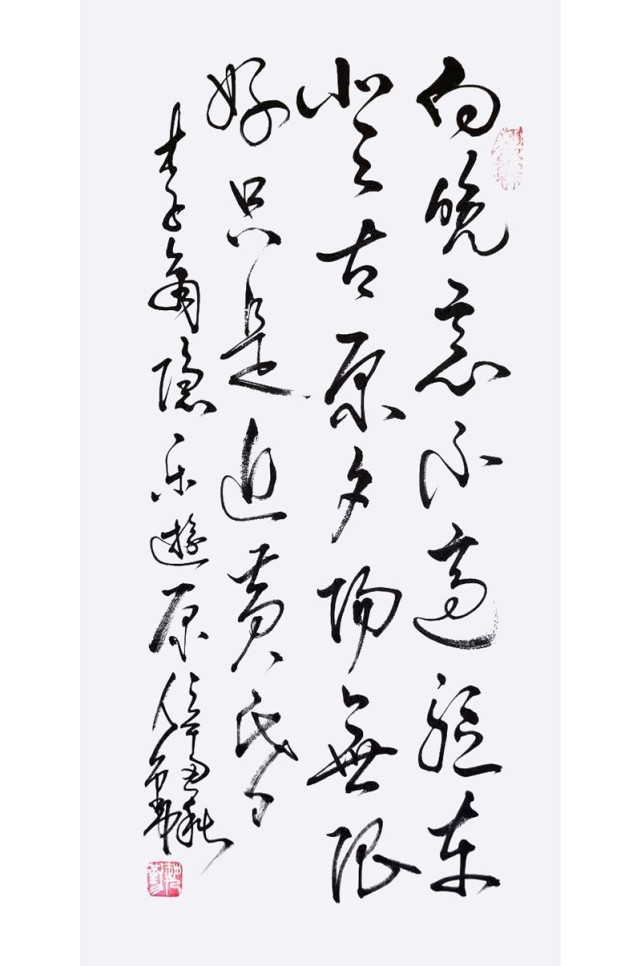 向晚意不適驱车
登古原夕阳無限
好只是近黄昏
李商隐乐遊原